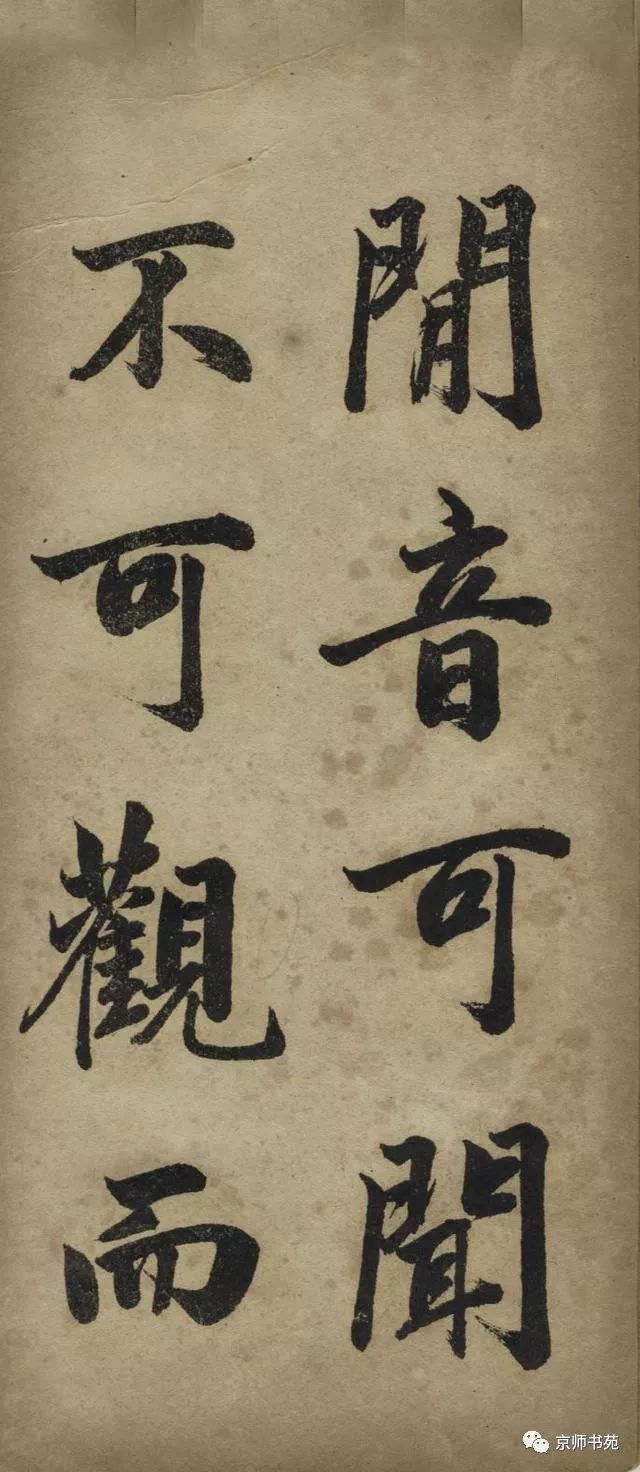 閒音可聞
不可觀而
京师书苑